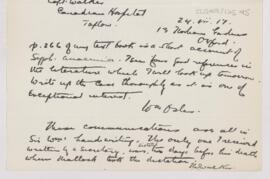 Capt. Walker
Canadian Hospital
Taplow.
24. vii. 17.
13 Norham Gardens
Oxford.
p. 266 of my text book is a short account of
Syph. anaemia. few good references in
the literature which I will look up tomorrow.
Write up the case thoroughly as it is one of
Exceptional interest.
Wm Osler.
These communications are all in
Sir Wm's handwriting. The only one I received
written by a Secretary was two days before his death
when Mallock took the dictation.